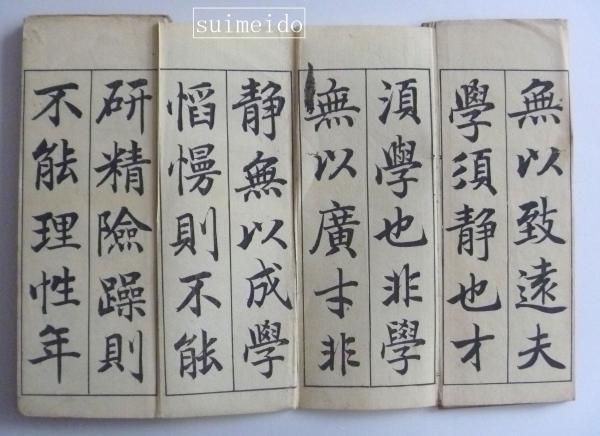 suimeido
無以致遠夫
學須静也才
須學也非學
無以廣才非
静無以成學
慆慢則不能
研精險躁則
不能理性年